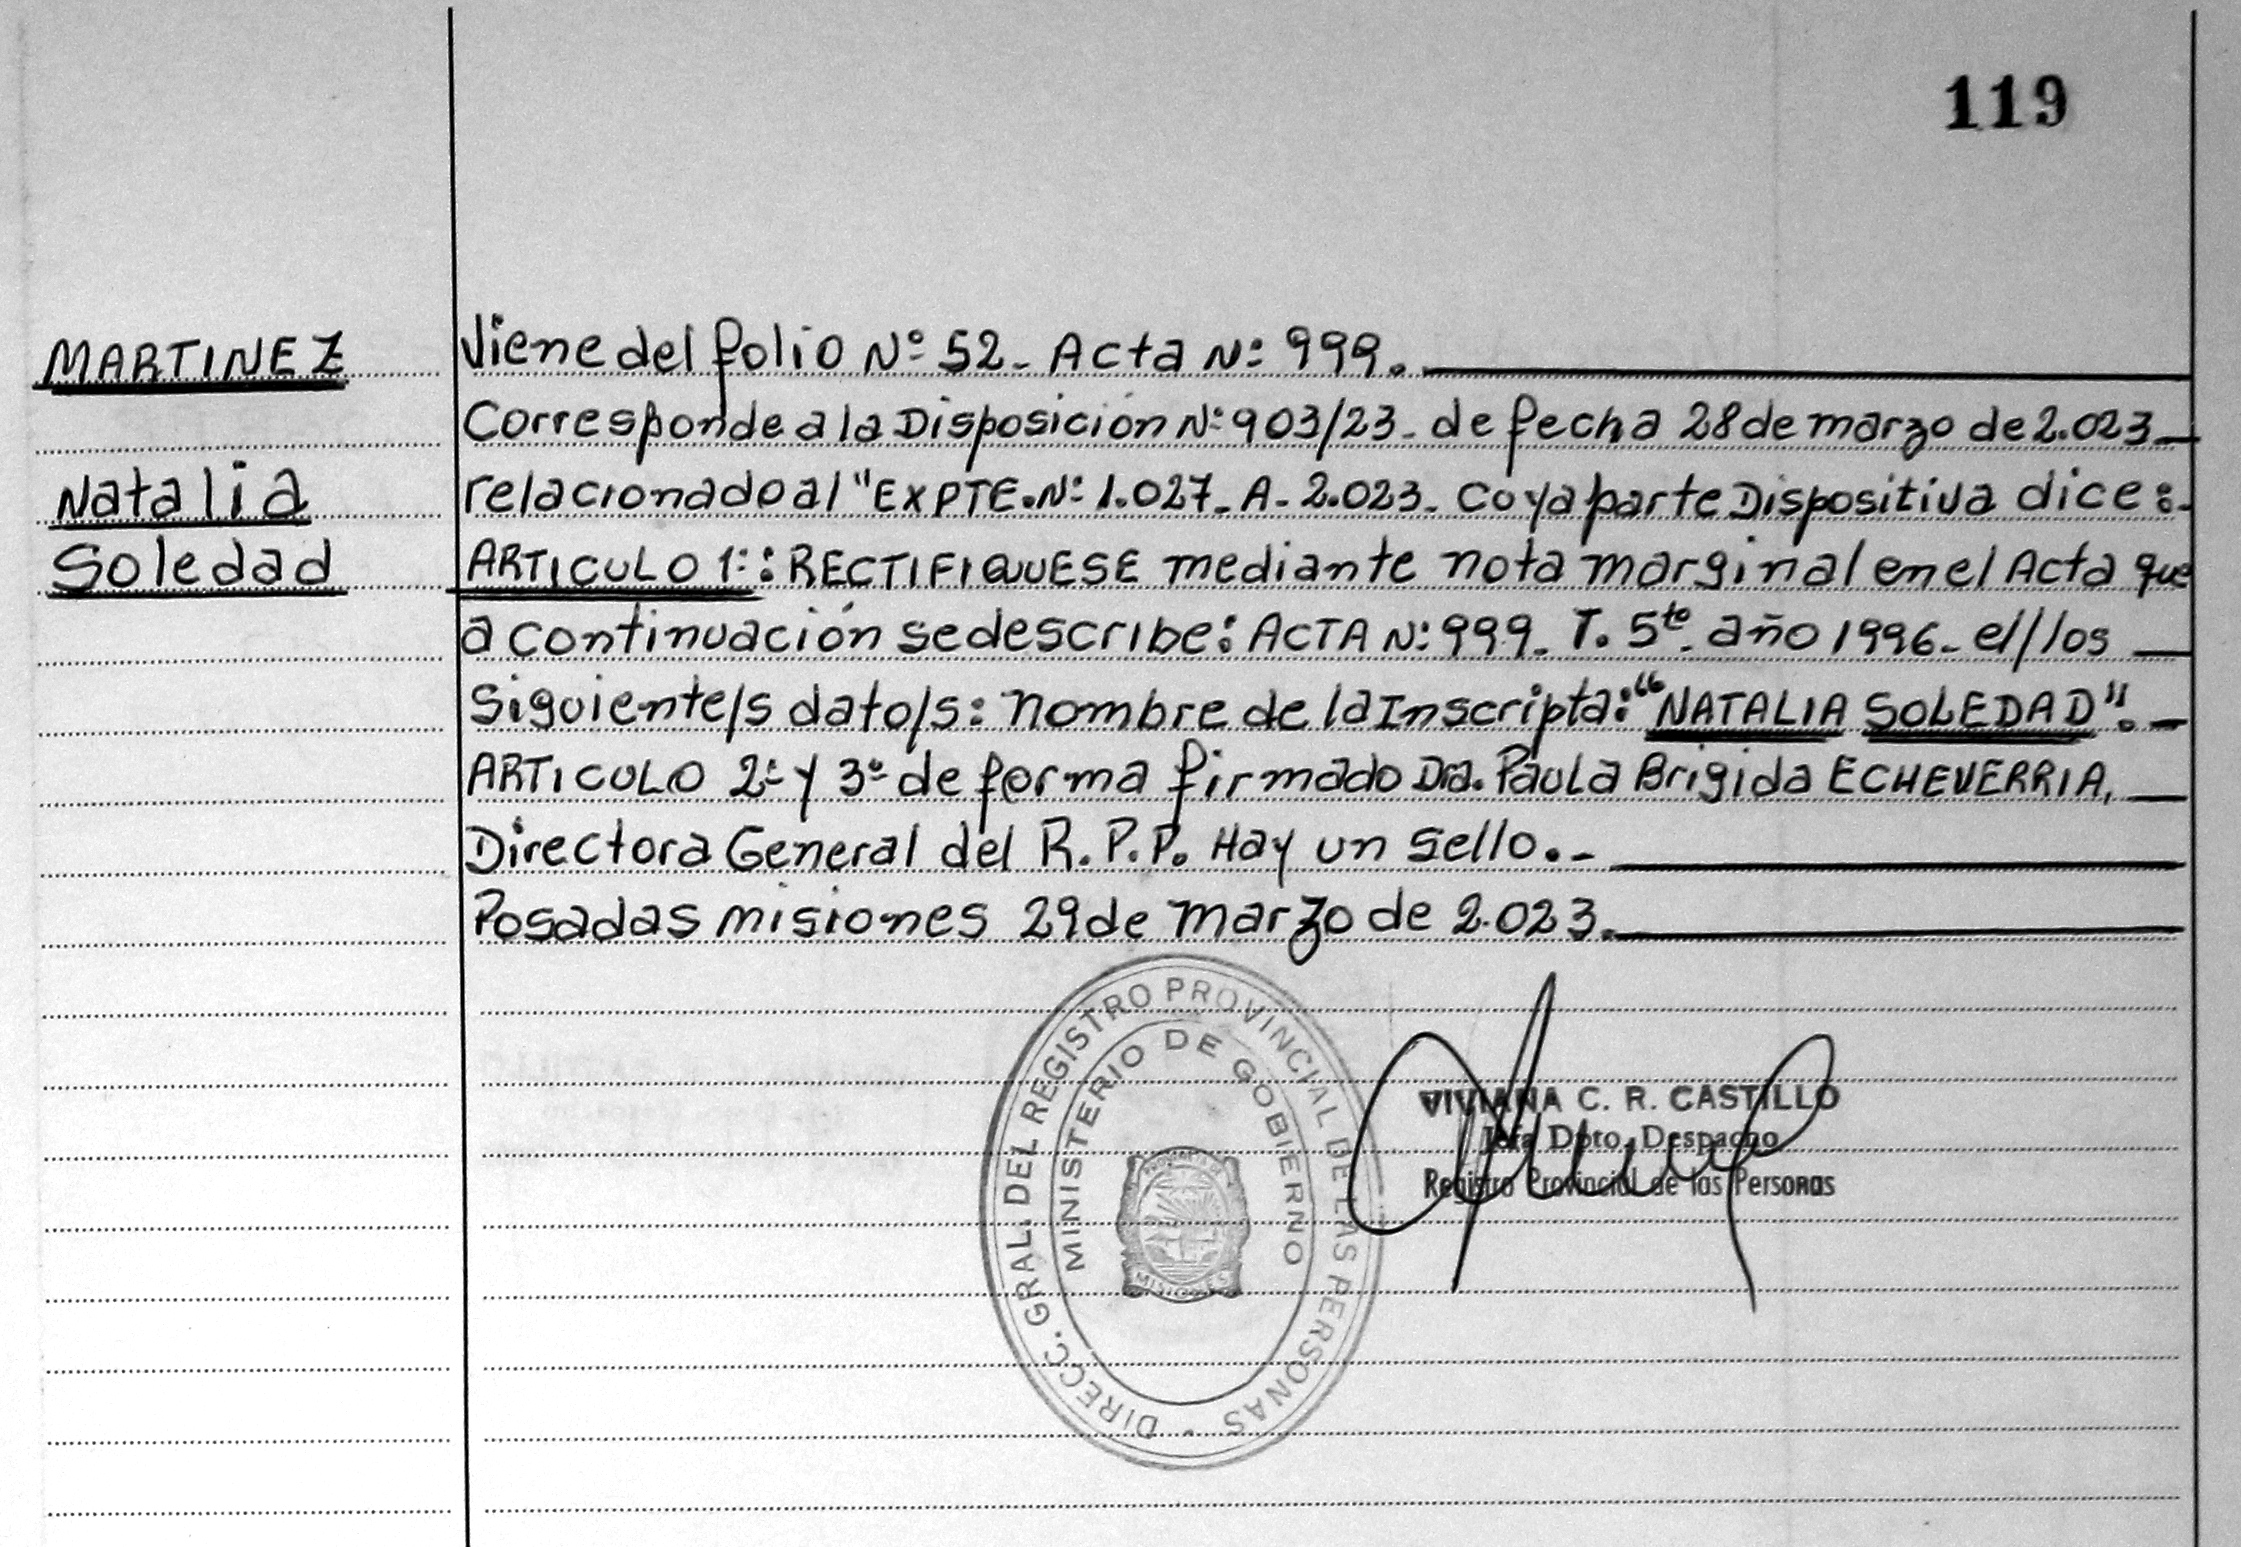 119
MARTINEZ
Natalia
Soledad
Viene del folio Nº 52_ Acta Nº 999.
Corresponde a la Disposición Nº 903/23_ de fecha 28 de marzo de 2.023_
relacionado al "EXPTE. Nº 1.027_ A_ 2.023_ Coya parte Dispositiva dice:-
ARTICULO 1º: RECTIFIQUUESE mediante nota marginal en el Acta que
a continuación se describe: ACTA Nº 999_ T. 5to_ año 1996_ el/los
Siguiente/s dato/s: nombre de la Inscripta: "NATALIA SOLEDAD".-
ARTICULO 2º y 3º de forma firmado Dra. Paula Brigida ECHEVERRIA,
Directora General del R.P.P. Hay un sello.-
Posadas misiones 29 de marzo de 2.023.
DIRECC. GRAL. DEL REGISTRO PROVINCIAL DE LAS PERSONAS
MINISTERIO DE GOBIERNO
MISIONES
VIVIANA C. R. CASTILLO
Jefa Dpto. Despacho
Registro Provincial de las Personas